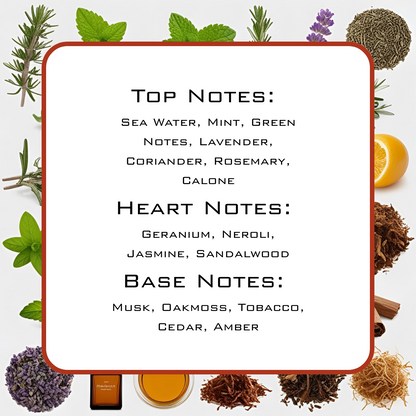 Top Notes:
Sea Water, Mint, Green
Notes, Lavender,
Coriander, Rosemary,
Calone
Heart Notes:
Geranium, Neroli,
Jasmine, Sandalwood
Base Notes:
Musk, Oakmoss, Tobacco,
Cedar, Amber